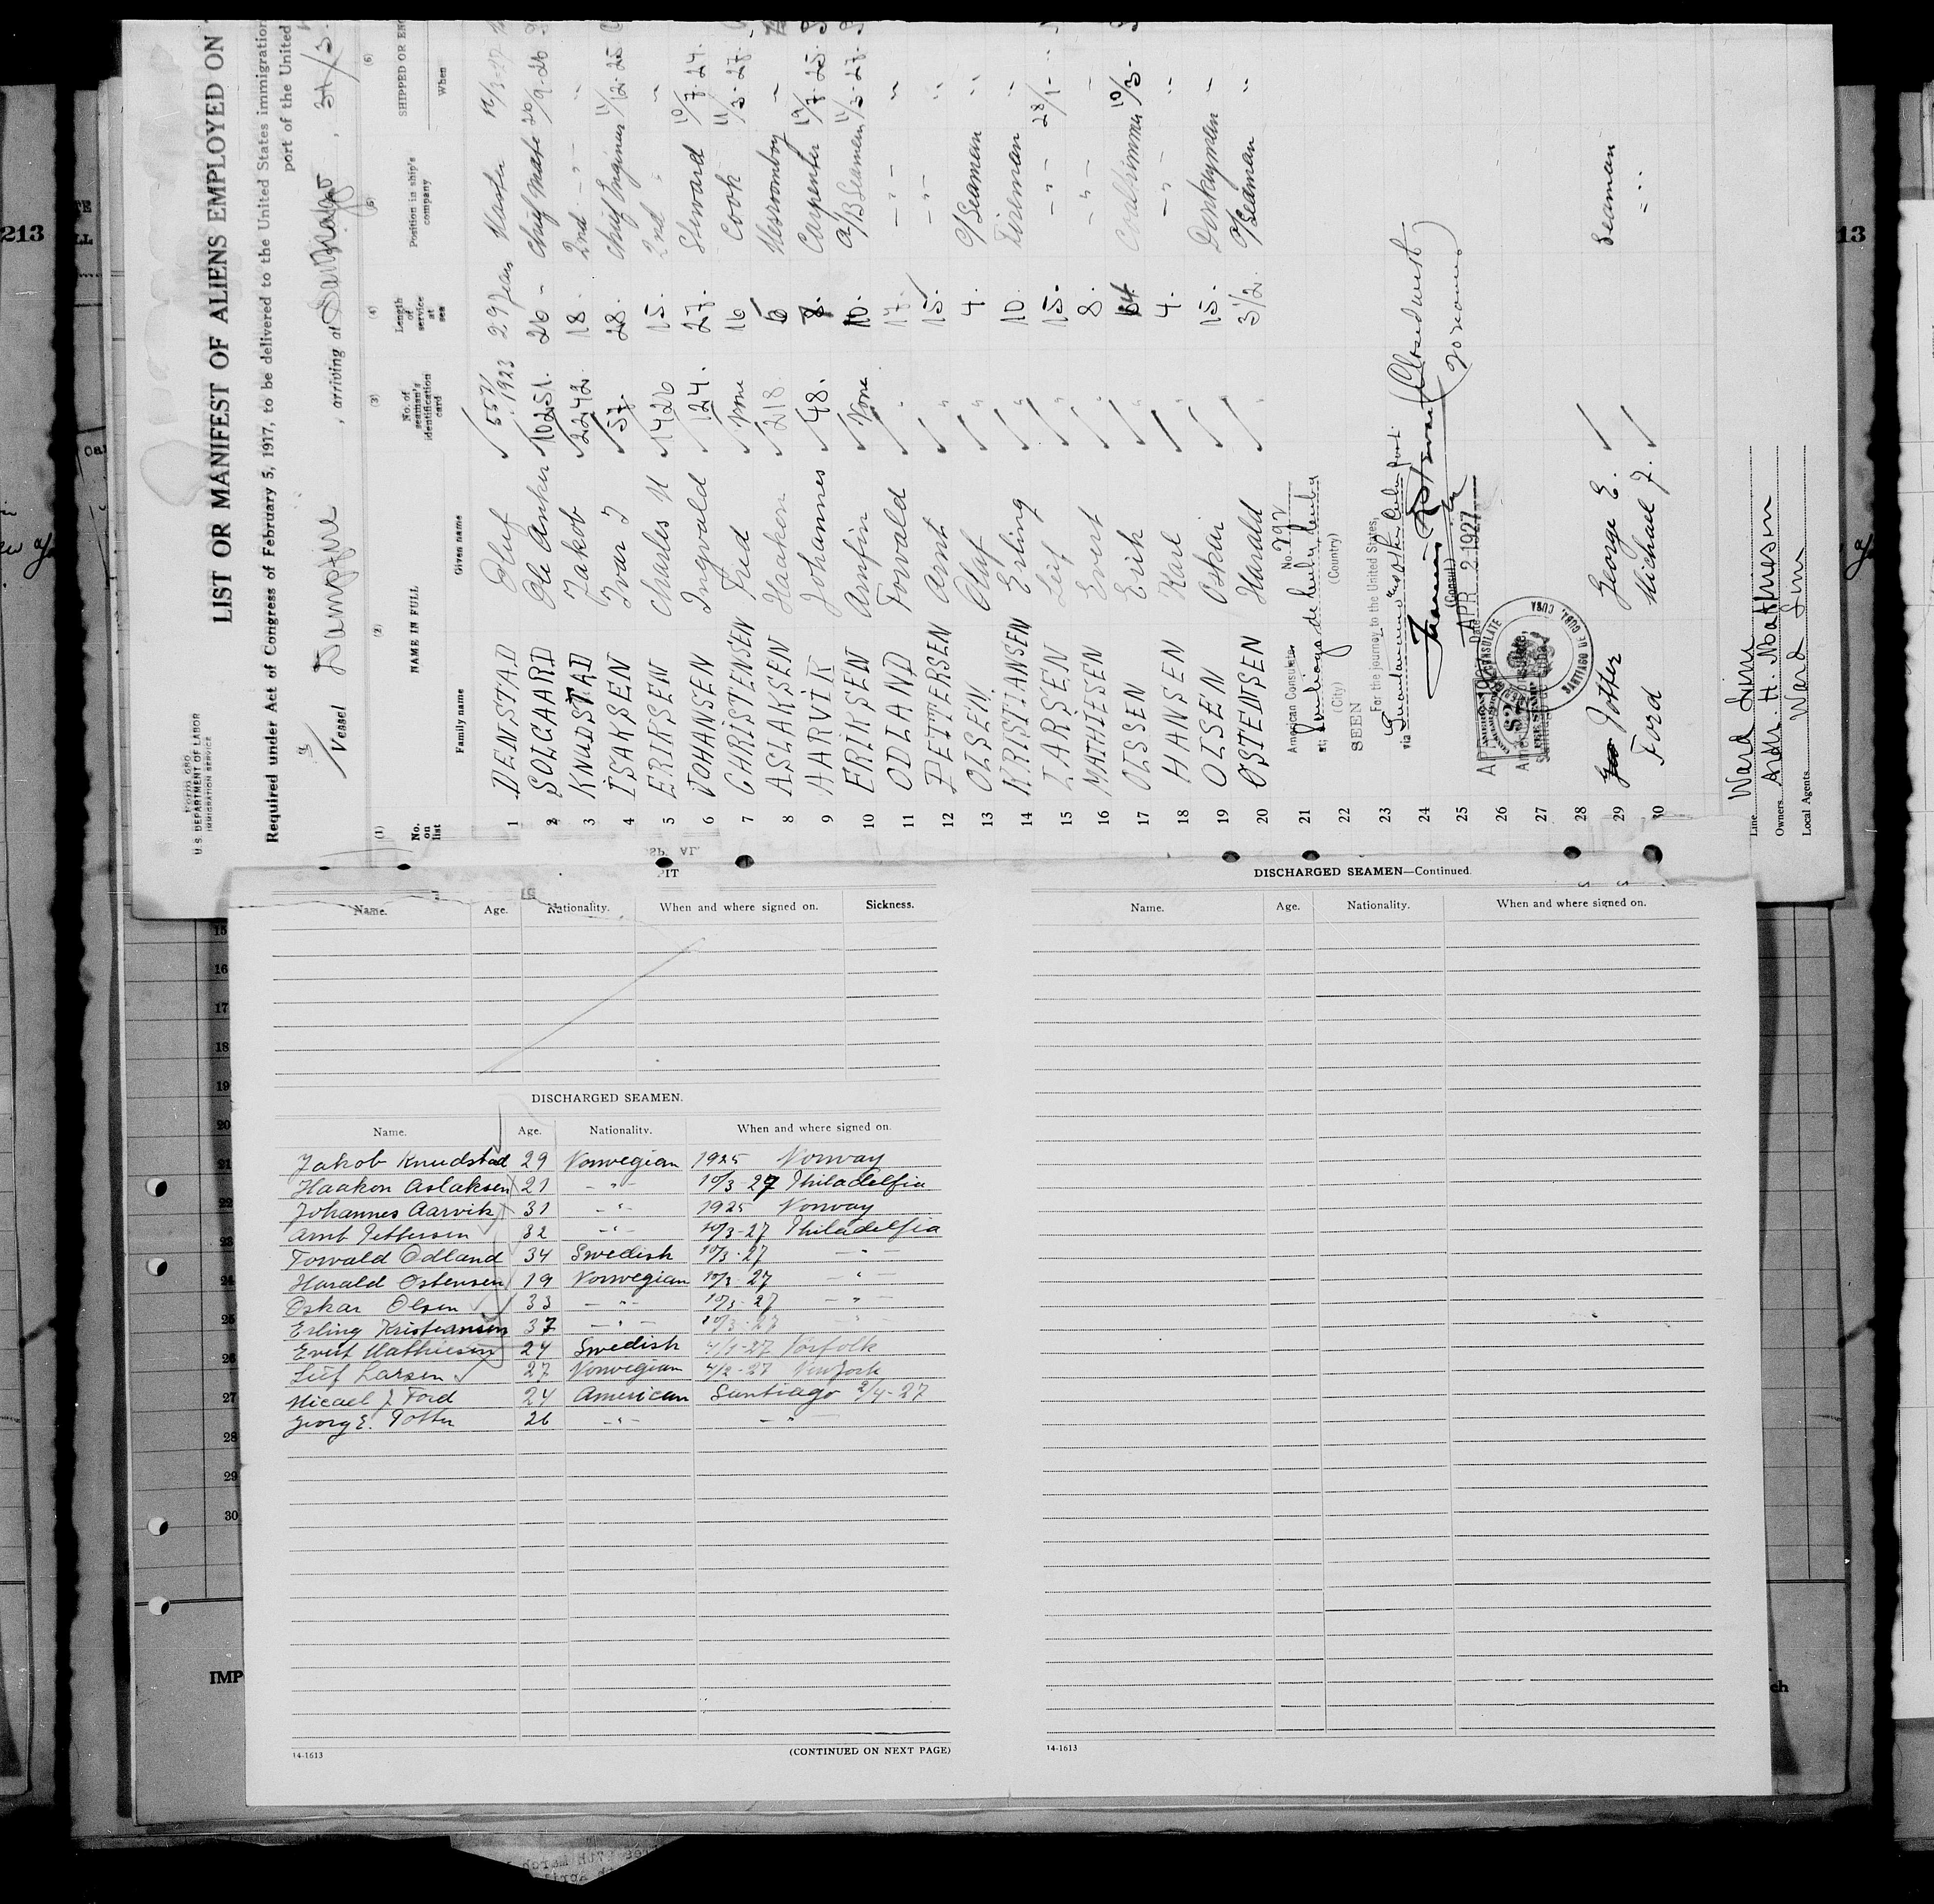 Form 680
U.S. DEPARTMENT OF LABOR
IMMIGRATION SERVICE
LIST OR MANIFEST OF ALIENS EMPLOYED ON
Required under Act of Congress of February 5, 1917, to be delivered to the United States immigration
port of the United
Vessel , arriving at , 31/3.
(1) (2) (3) (4) (5) (6)
No. on list NAME IN FULL No. of seaman's identification card Length of service at sea Position in ship's company SHIPPED OR EN
Family name Given name When
1 DENSTAD Oluf 5571/1923 29 years Master
2 SOLGAARD Ole Anker 10251. 26 - Chief Mate 20/9-26
3 KNUDSTAD Jakob 2242. 18. 2nd - " -
4 ISAKSEN Ivar J 57. 28. Chief Engineer 11/12-25
5 ERIKSEN Charles N 1426 15. 2nd "
6 JOHANSEN Ingvald 124. 27. Steward 10/7-24.
7 CHRISTENSEN Fred None 16 Cook 11/3-27.
8 ASLAKSEN Haakon 218 6 Messroomboy
9 AARVIK Johannes 48. 8. Carpenter 19/7-25.
10 ERIKSEN Arnfin None 10. A/B Seaman 11/3-27.
11 ODLAND Torvald " 17. - " - "
12 PETTERSEN Arnt " 15. - " - "
13 OLSEN Olaf " 4. O/Seaman "
14 KRISTIANSEN Erling " 10. Fireman "
15 LARSEN Leif " 15. - " - 28/1-
16 MATHIESEN Evert " 8. - " -
17 OLSSEN Erik " Coaltrimmer 10/3.
18 HANSEN Karl " 4. - " - "
19 OLSEN Oskar " 15. Donkeyman "
20 OSTENSEN Harald " 3 1/2. O/Seaman "
21 American Consulate No. 292
at; Santiago de Cuba, Cuba
22 (City) (Country)
SEEN
23 For the journey to the United States,
via Guantanamo
24
(Consul)
25 Date APR 2 1927
26
27 SANTIAGO DE CUBA, CUBA
28
29 Potter George E. Seaman
30 Ford Michael J. - " -
Line Ward Line
Owners Andr. H. Mathiesen
Local Agents Ward Line
Name. Age. Nationality. When and where signed on. Sickness.
DISCHARGED SEAMEN.
Name. Age. Nationality. When and where signed on.
Jakob Knudstad 29 Norwegian 1925 Norway
Haakon Aslaksen 21 - " - 10/3-27 Philadelfia
Johannes Aarvik 31 - " - 1925 Norway
Arnt Pettersen 32 - " - 10/3-27 Philadelfia
Torvald Odland 34 Swedish 10/3-27 - " -
Harald Ostensen 19 Norwegian 10/3-27 - " -
Oskar Olsen 33 - " - 10/3-27 - " -
Erling Kristiansen 37 - " - 10/3-27 - " -
Evert Mathiesen 24 Swedish Norfolk
Leif Larsen 27 Norwegian New York
Micael J Ford 24 American Santiago 2/4-27
Georg E. Potter 26 - " - - " -
14-1613 (CONTINUED ON NEXT PAGE)
DISCHARGED SEAMEN—Continued.
Name. Age. Nationality. When and where signed on.
14-1613
213
13
15
16
17
18
19
20
21
22
23
24
25
26
27
28
29
30
IMP
ch